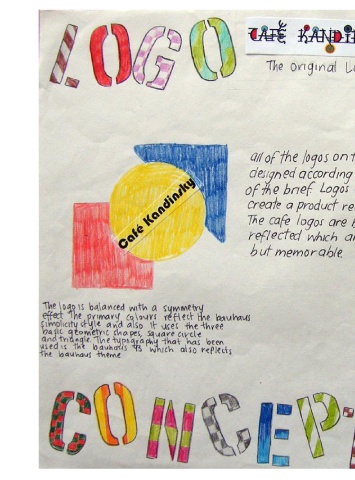 LOGO
CAFÉ KANDI
The original Lo
all of the logos on t
designed according
of the brief. Logos
create a product re
The cafe logos are b
reflected which ar
but memorable
Café Kandinsky
The logo is balanced with a symmetry
effect The primary colours reflect the bauhaus
simplicity style and also it uses the three
basic geometric shapes, square circle
and triangle. The typography that has been
used is the bauhaus 93 which also reflects
the bauhaus theme
CONCEPT